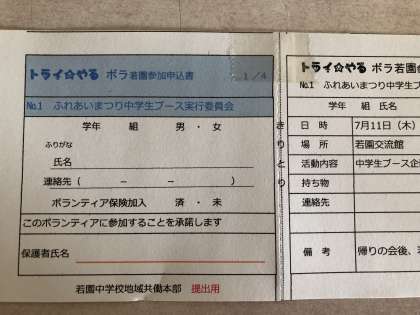 トライ☆やる ボラ若園参加申込書
1/4
No.1 ふれあいまつり中学生ブース実行委員会
学年 組 男・女
ふりがな
氏名
連絡先( － － )
ボランティア保険加入 済・未
このボランティアに参加することを承諾します
保護者氏名
若園中学校地域共働本部 提出用
きりとり
トライ☆やる ボラ若園
No.1 ふれあいまつり中学生ブ
学年 組 氏名
日時 7月11日(木)
場所 若園交流館
活動内容 中学生ブース企
持ち物
連絡先
備考 帰りの会後、